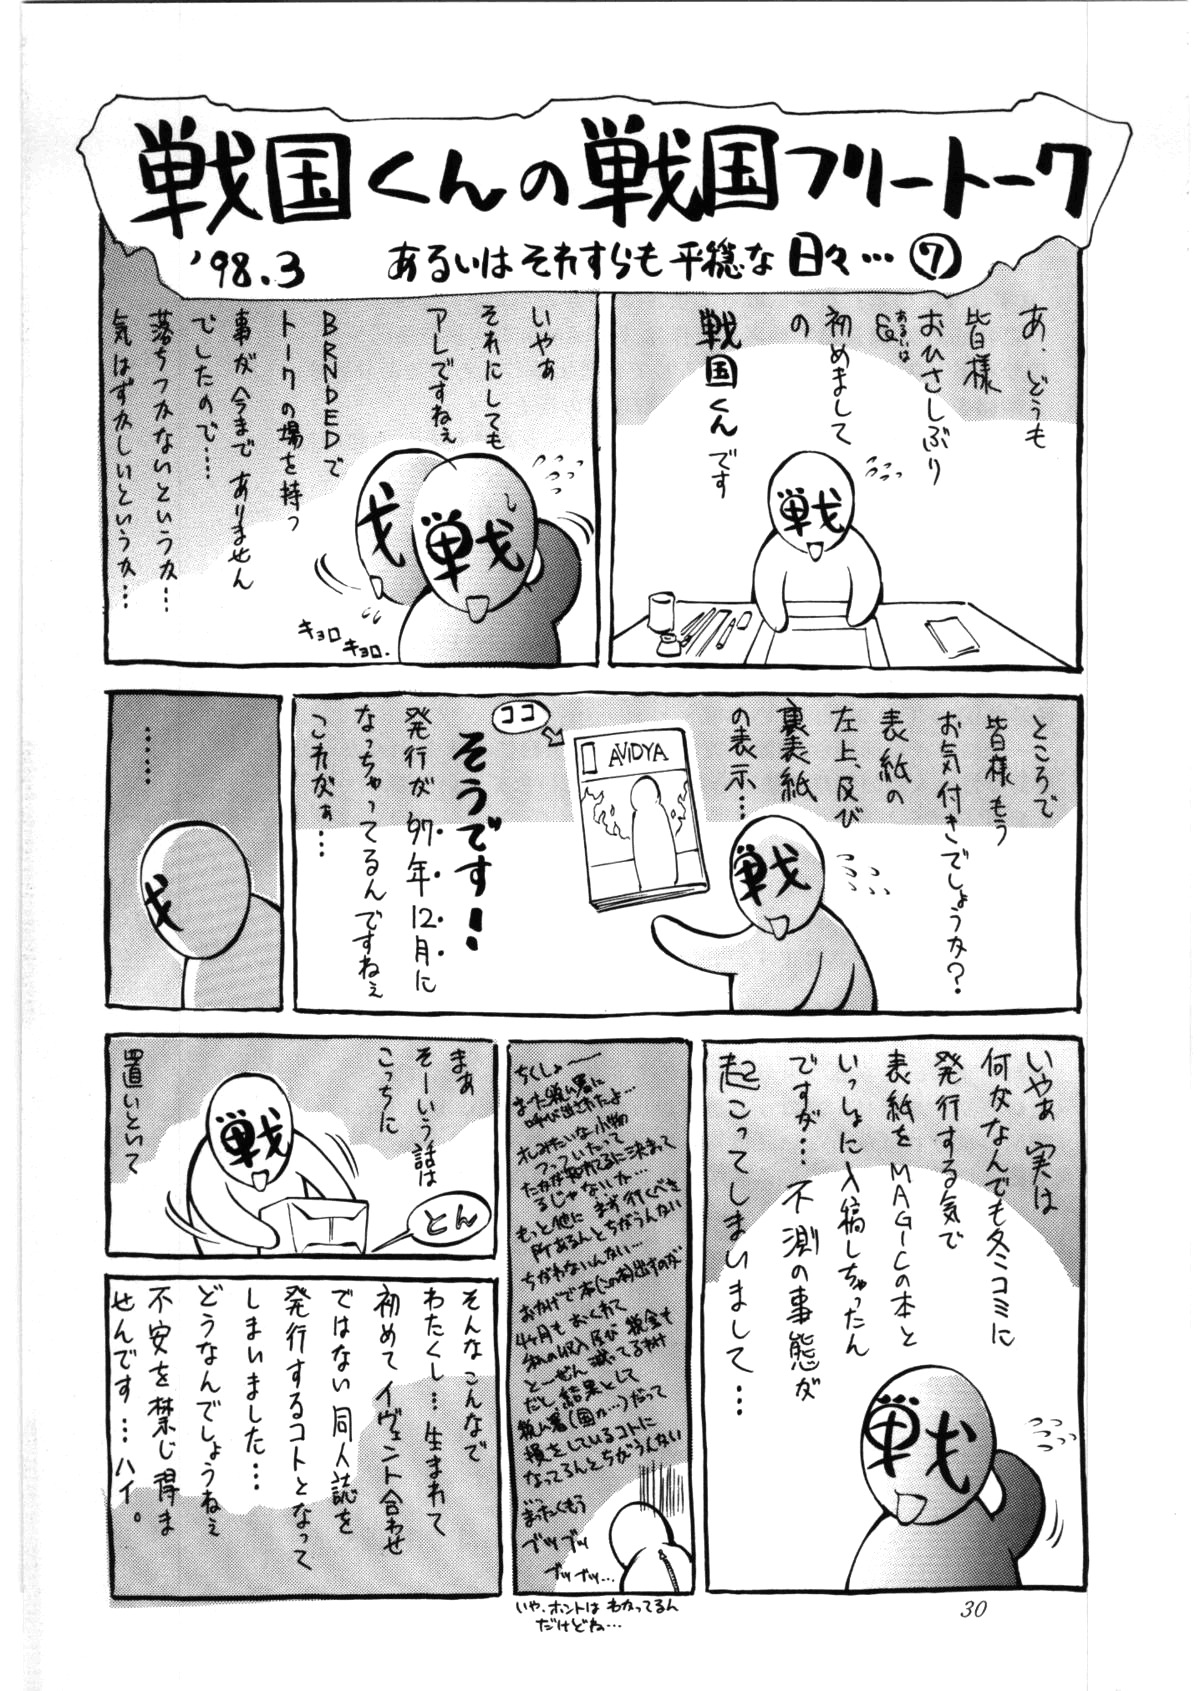 戦国くんの戦国フリートーク
'98.3 あるいはそれすらも平穏な日々…⑦
あ、どうも
皆様
おひさしぶり
&
あるいは
初めまして
の
戦国くんです
戦
いやぁ
それにしても
アレですねぇ
BRNDEDで
トークの場を持つ
事が今までありません
でしたので……
落ちつかないというか…
気はずかしいというか…
戦
キョロ
キョロ。
ところで
皆様もう
お気付きでしょうか?
表紙の
左上、及び
裏表紙
の表示…
戦
ココ
AVIDYA
そうです!
発行が'97年12月に
なっちゃってるんですねぇ
これがぁ…
……
いやぁ実は
何がなんでも冬コミに
発行する気で
表紙をMAGICの本と
いっしょに入稿しちゃったん
ですが…不測の事態が
起こってしまいまして…
戦
ちくしょー
また税ム署に
呼び出されたよ…
オレみたいな小物
つっついたって
たかが知れてるに決まって
るじゃないか…
もっと他にまず行くべき
所あるんとちがうんない
ちがわないんない…
おかげで本(この本)出すのが
4ヶ月もおくれて
私の収入及び税金も
と〜ぜん減ってるわけ
だし結果として
税ム署(国か…)だって
損をしているコトに
なってるんとちがうんない
まったくもう
ブツブツ
ブツブツ…
いや、ホントはわかってるん
だけどね…
まぁ
そーいう話は
こっちに
置いといて
戦
とん
そんなこんなで
わたくし…生まれて
初めてイヴェント合わせ
ではない同人誌を
発行するコトとなって
しまいました…
どうなんでしょうねぇ
不安を禁じ得ま
せんです…ハイ。
30